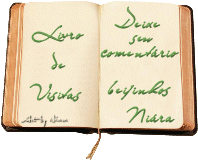 Livro
de
Visitas
Deixe
seu
comentário
beijinhos
Niára